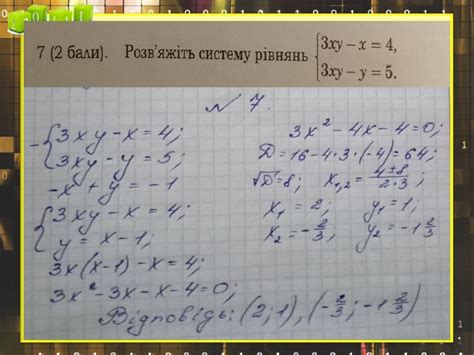 7 (2 бали). Розв'яжіть систему рівнянь { 3xy – x = 4,
3xy – y = 5.
№ 7.
- { 3xy - x = 4;
3xy - y = 5;
-x + y = -1
{ 3xy - x = 4;
y = x - 1;
3x(x-1) - x = 4;
3x² - 3x - x - 4 = 0;
3x² - 4x - 4 = 0;
D = 16 - 4·3·(-4) = 64;
√D = 8; x₁,₂ = (4±8)/(2·3);
x₁ = 2; y₁ = 1;
x₂ = -2/3; y₂ = -1 2/3
Відповідь: (2; 1), (-2/3; -1 2/3)